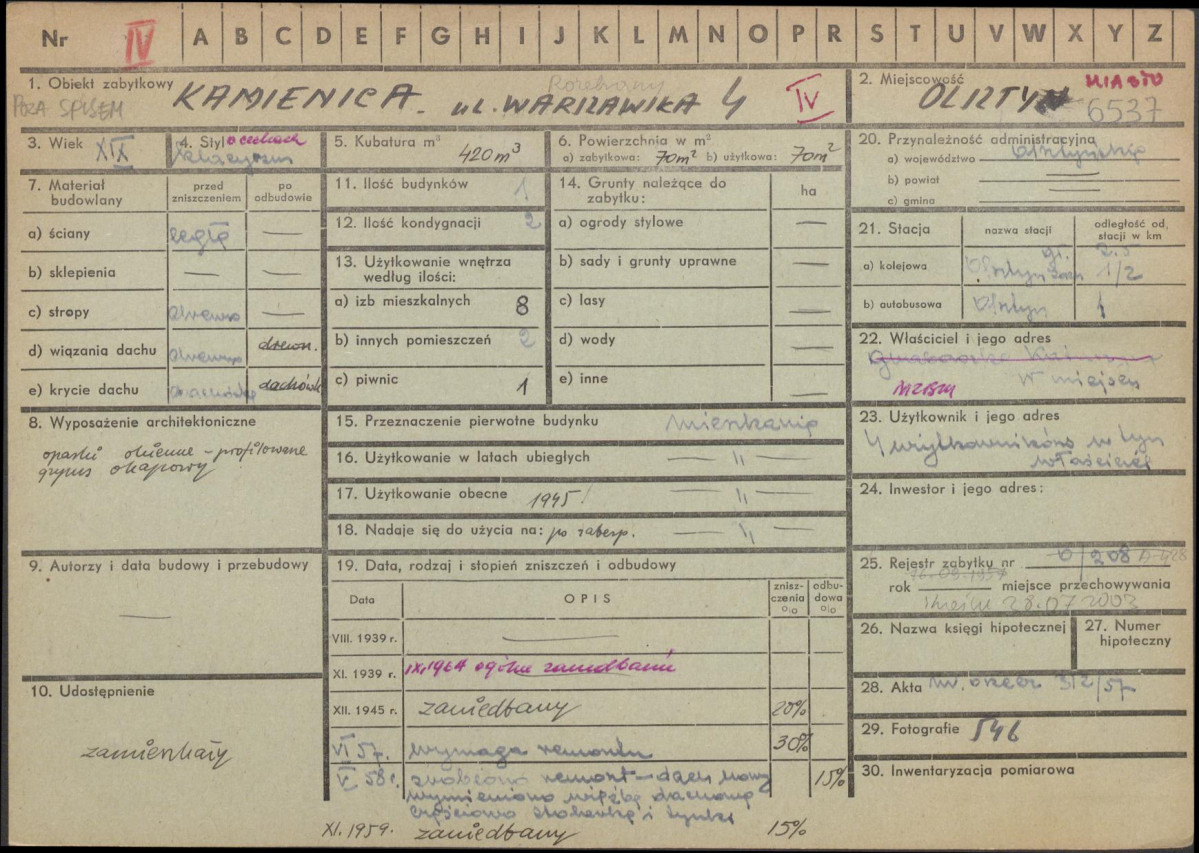 Nr IV A B C D E F G H I J K L M N O P R S T U V W X Y Z
1. Obiekt zabytkowy KAMIENICA. ul. WARSZAWSKA 4 IV
Rozebrany
POZA SPISEM
2. Miejscowość MIASTO
OLSZTYN 6537
3. Wiek XIX
4. Styl o cechach
klasycyzm
5. Kubatura m³ 420 m³
6. Powierzchnia w m²
a) zabytkowa: 70m² b) użytkowa: 70m²
7. Materiał budowlany
przed zniszczeniem
po odbudowie
a) ściany cegła —
b) sklepienia — —
c) stropy drewno —
d) wiązania dachu drewno drewn.
e) krycie dachu dachówka dachówk
8. Wyposażenie architektoniczne
opaski okienne – profilowane
gzyms okapowy
9. Autorzy i data budowy i przebudowy
—
10. Udostępnienie
zamieszkały
11. Ilość budynków 1
12. Ilość kondygnacji 2
13. Użytkowanie wnętrza
według ilości:
a) izb mieszkalnych 8
b) innych pomieszczeń 2
c) piwnic 1
14. Grunty należące do
zabytku:
ha
a) ogrody stylowe —
b) sady i grunty uprawne —
c) lasy —
d) wody —
e) inne —
15. Przeznaczenie pierwotne budynku mieszkanie
16. Użytkowanie w latach ubiegłych — „ —
17. Użytkowanie obecne 1945! — „ —
18. Nadaje się do użycia na: po zabezp. — „ —
19. Data, rodzaj i stopień zniszczeń i odbudowy
Data
OPIS
znisz-
czenia
o/o
odbu-
dowa
o/o
VIII. 1939 r. —
XI. 1939 r. IX.1964 ogólne zaniedbanie
XII. 1945 r. zaniedbany 20%
VI 57. wymaga remontu 30%
V 58 r. zrobiono remont – dach nowy 15%
wymieniono więźbę dachową
częściowo stolarkę i tynki
XI. 1959. zaniedbany 15%
20. Przynależność administracyjna
a) województwo olsztyńskie
b) powiat —
c) gmina —
21. Stacja
nazwa stacji
odległość od.
stacji w km
a) kolejowa Olsztyn gł. 2.5
Olsztyn zach 1/2
b) autobusowa Olsztyn 1
22. Właściciel i jego adres
w miejscu
MZBM
23. Użytkownik i jego adres
4 użytkowników w tym
właściciel
24. Inwestor i jego adres:
25. Rejestr zabytku nr 0/208
rok — miejsce przechowywania
28.07.2003
26. Nazwa księgi hipotecznej
27. Numer
hipoteczny
28. Akta
29. Fotografie 546
30. Inwentaryzacja pomiarowa